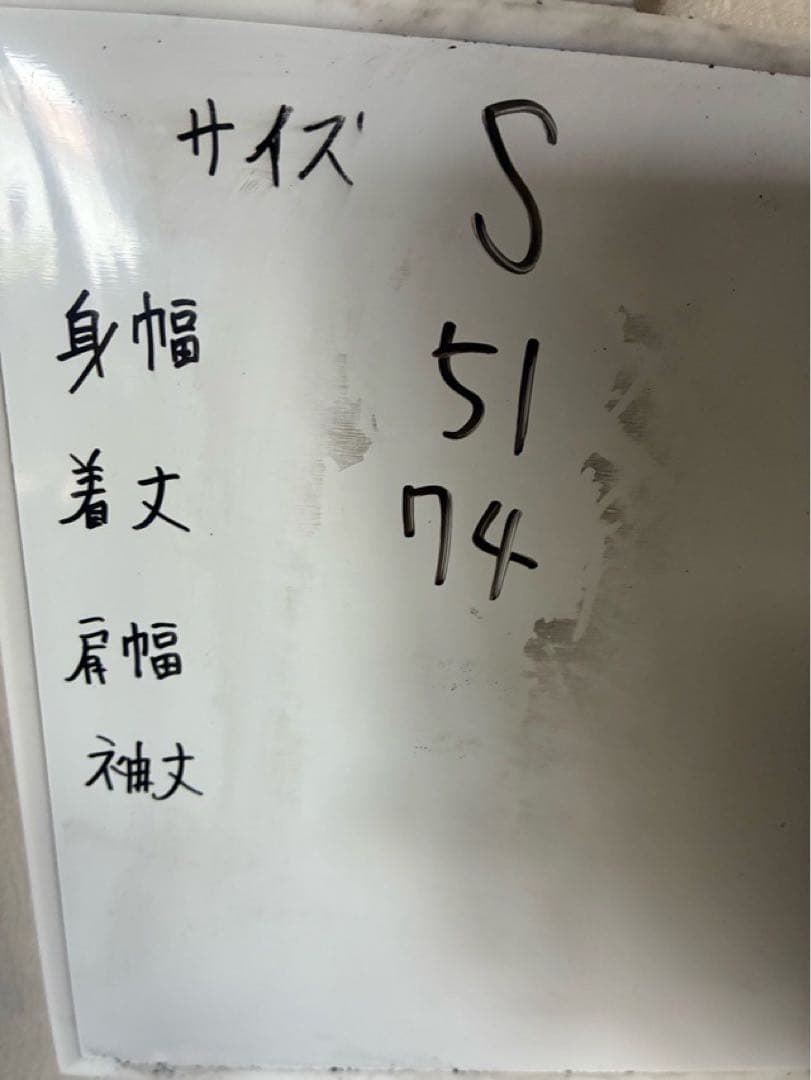 サイズ S
身幅 51
着丈 74
肩幅
袖丈